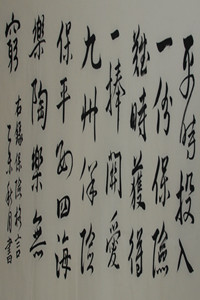 平时投入
一份保險
難時獲得
一捧關愛
九州保險
保平安四海
樂陶樂無
窮
右錄保險格言
乙未秋月書